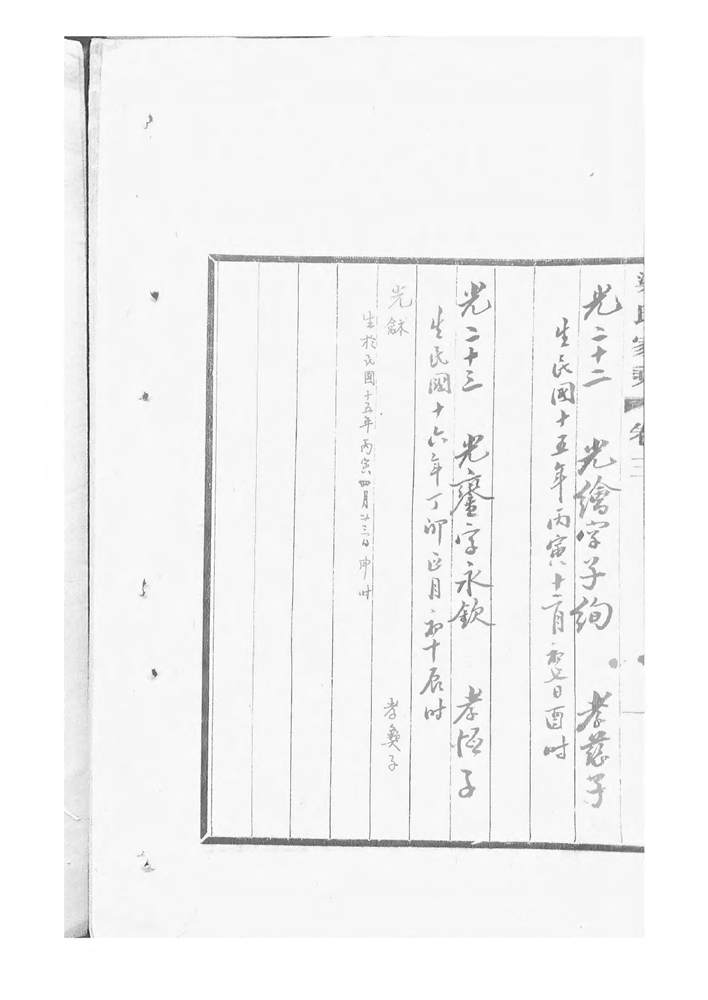 氏家 卷三
光二十二 光繪字子絢 孝慈子
生民國十五年丙寅十二月初七日酉时
光二十三 光鑾字永欽 孝恒子
生民國十六年丁卯正月初十辰时
光龢 孝彝子
生於民國十五年丙寅四月廿三日申时